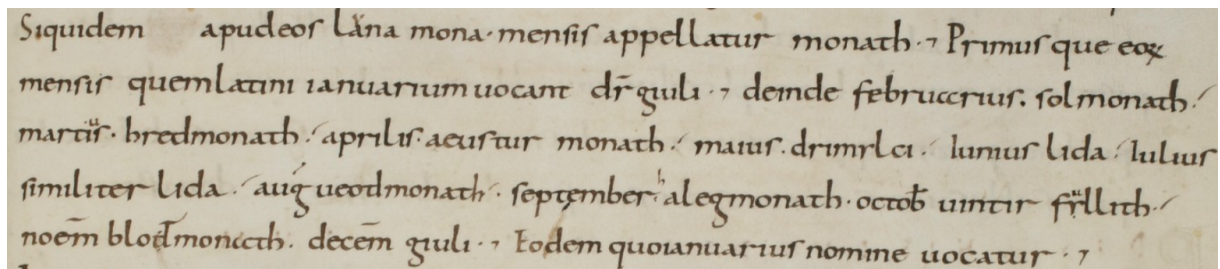 Siquidem apud eos lūna mona· mensis appellatur monath·⁊ Primus que eoꝝ
mensis quem latini ianuarium uocant dr̄ giuli·⁊ deinde februarius. sol monath·
martius· hredmonath· aprilis· aeustur monath· maius· drimrlci· Iunius lida· Iulius
similiter lida· aug̓ ueodmonath· september· halegmonath· octob̄ uintir fẏllith·
noem̄ blodmonath· decem̄ giuli·⁊ Eodem quo ianuarius nomine uocatur·⁊